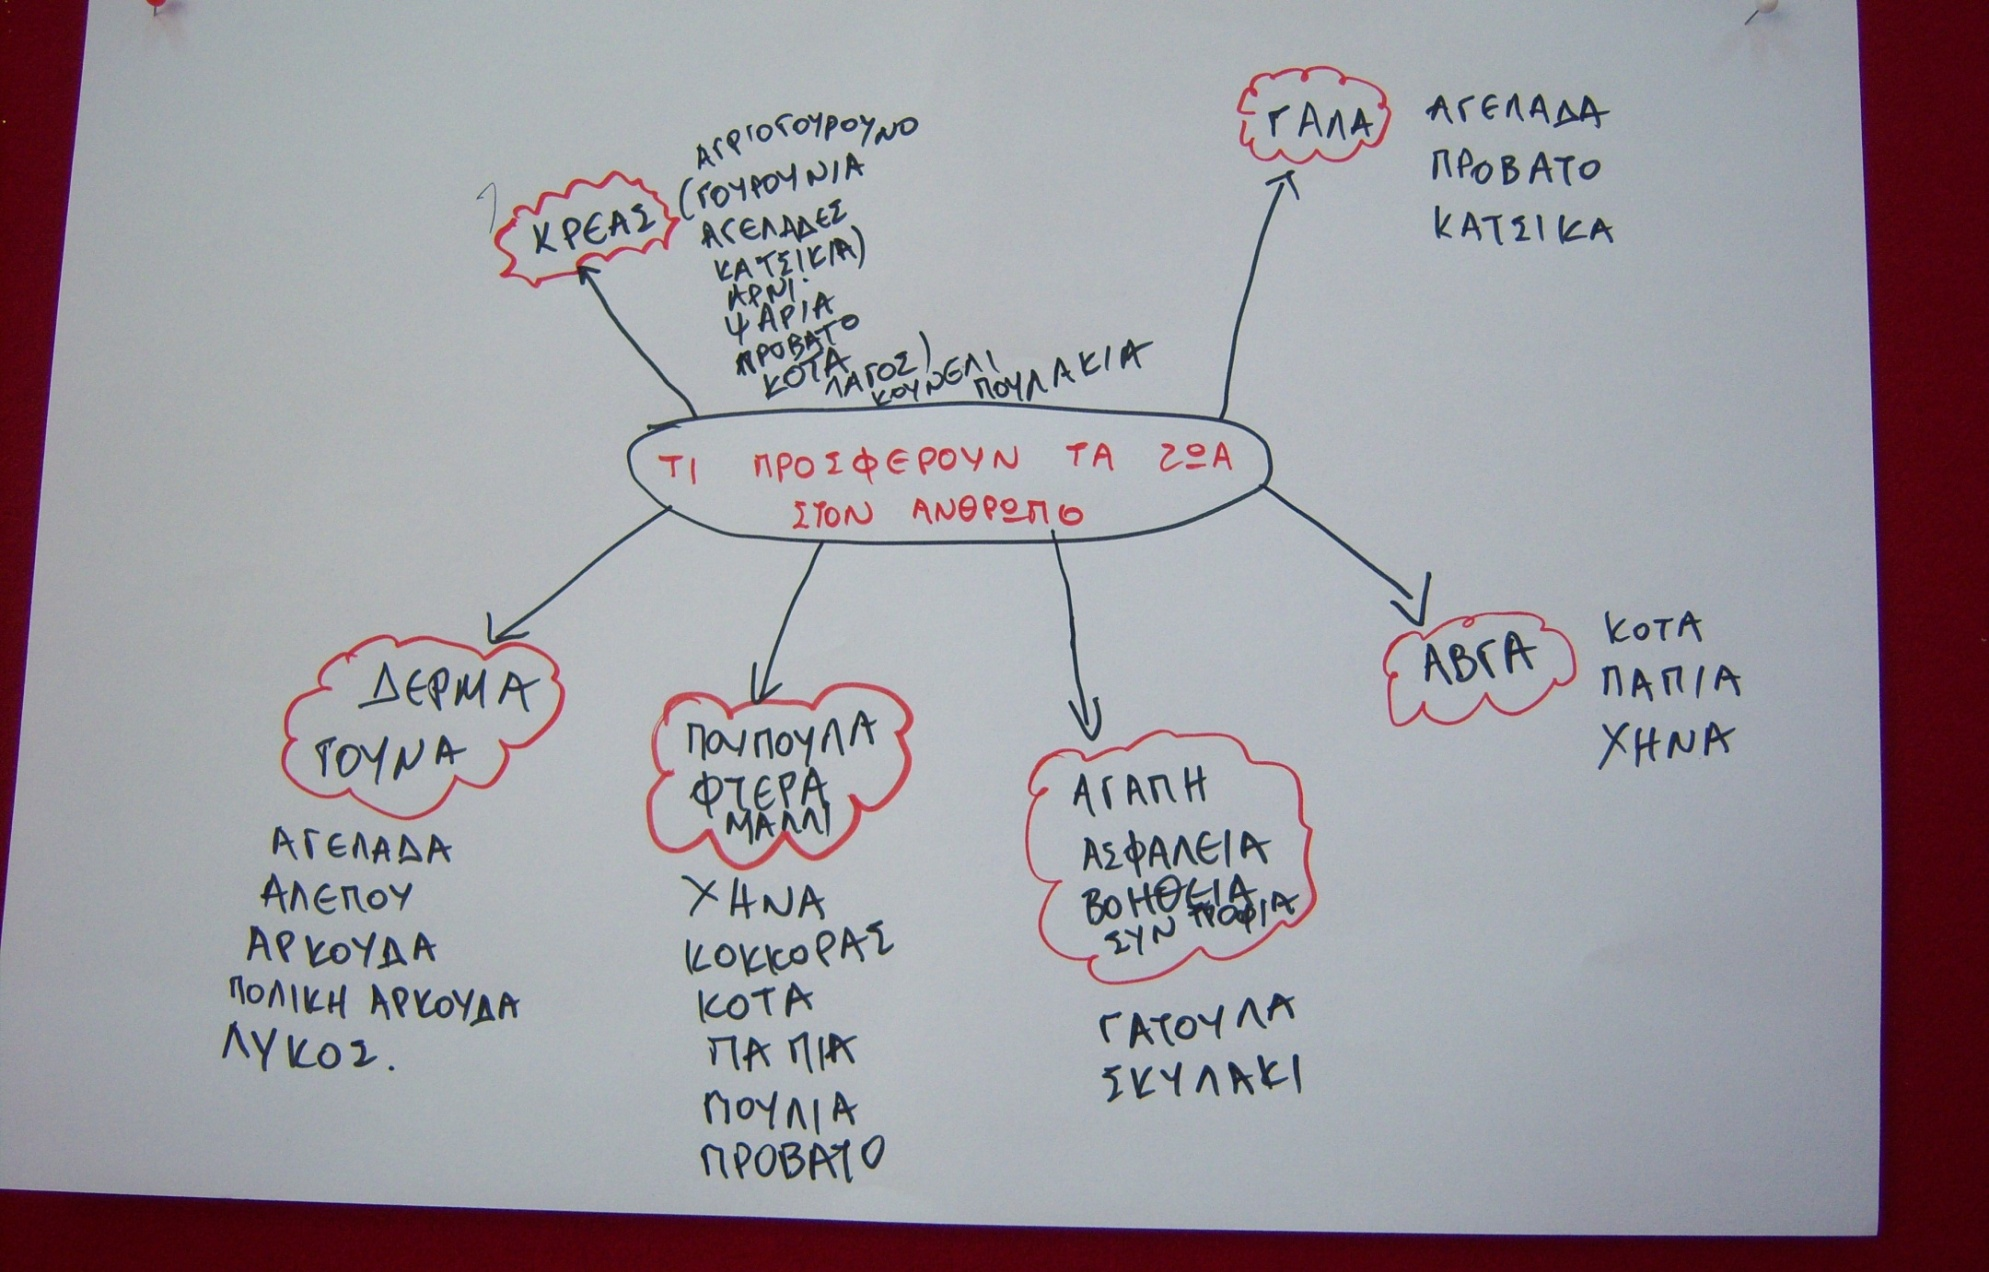 ΚΡΕΑΣ
ΑΓΡΙΟΓΟΥΡΟΥΝΟ
(ΓΟΥΡΟΥΝΙΑ
ΑΓΕΛΑΔΕΣ
ΚΑΤΣΙΚΙΑ)
ΑΡΝΙ
ΨΑΡΙΑ
ΠΡΟΒΑΤΟ
ΚΟΤΑ
ΛΑΓΟΣ)
ΚΟΥΝΕΛΙ
ΠΟΥΛΑΚΙΑ
ΓΑΛΑ
ΑΓΕΛΑΔΑ
ΠΡΟΒΑΤΟ
ΚΑΤΣΙΚΑ
ΤΙ ΠΡΟΣΦΕΡΟΥΝ ΤΑ ΖΩΑ
ΣΤΟΝ ΑΝΘΡΩΠΟ
ΔΕΡΜΑ
ΓΟΥΝΑ
ΑΓΕΛΑΔΑ
ΑΛΕΠΟΥ
ΑΡΚΟΥΔΑ
ΠΟΛΙΚΗ ΑΡΚΟΥΔΑ
ΛΥΚΟΣ.
ΠΟΥΠΟΥΛΑ
ΦΤΕΡΑ
ΜΑΛΛΙ
ΧΗΝΑ
ΚΟΚΚΟΡΑΣ
ΚΟΤΑ
ΠΑΠΙΑ
ΠΟΥΛΙΑ
ΠΡΟΒΑΤΟ
ΑΓΑΠΗ
ΑΣΦΑΛΕΙΑ
ΒΟΗΘΕΙΑ
ΣΥΝΤΡΟΦΙΑ
ΓΑΤΟΥΛΑ
ΣΚΥΛΑΚΙ
ΑΒΓΑ
ΚΟΤΑ
ΠΑΠΙΑ
ΧΗΝΑ